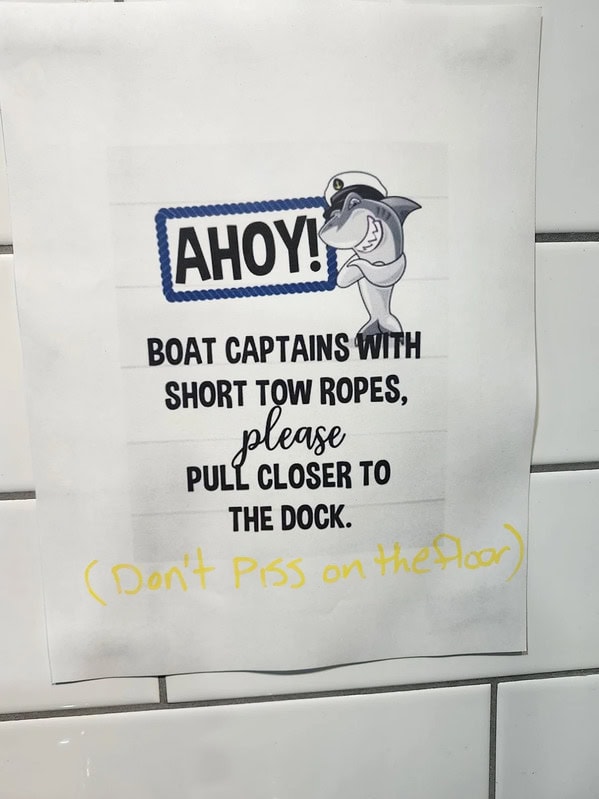 AHOY!
BOAT CAPTAINS WITH
SHORT TOW ROPES,
please
PULL CLOSER TO
THE DOCK.
(Don't Piss on the floor)